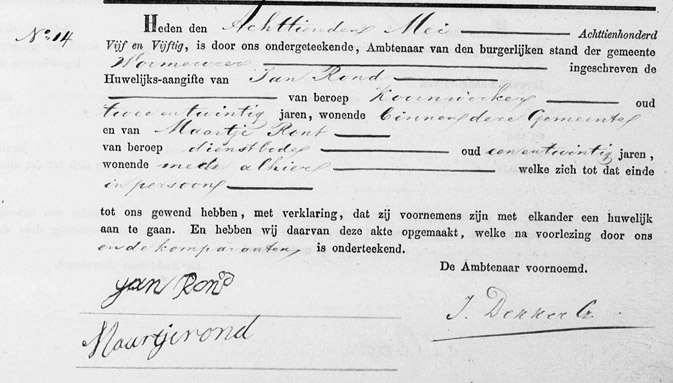 No. 14
Heden den Achttienden Mei Achttienhonderd
Vijf en Vijftig, is door ons ondergeteekende, Ambtenaar van den burgerlijken stand der gemeente
Wormerveer ingeschreven de
Huwelijks-aangifte van Jan Rond
van beroep Koornwerker oud
twee en twintig jaren, wonende binnen deze Gemeente
en van Maartje Ront
van beroep dienstbode oud een en twintig jaren,
wonende mede alhier welke zich tot dat einde
in persoon
tot ons gewend hebben, met verklaring, dat zij voornemens zijn met elkander een huwelijk
aan te gaan. En hebben wij daarvan deze akte opgemaakt, welke na voorlezing door ons
en de komparanten is onderteekend.
De Ambtenaar voornoemd.
Jan Rond
J. Dekker
Maartje rond